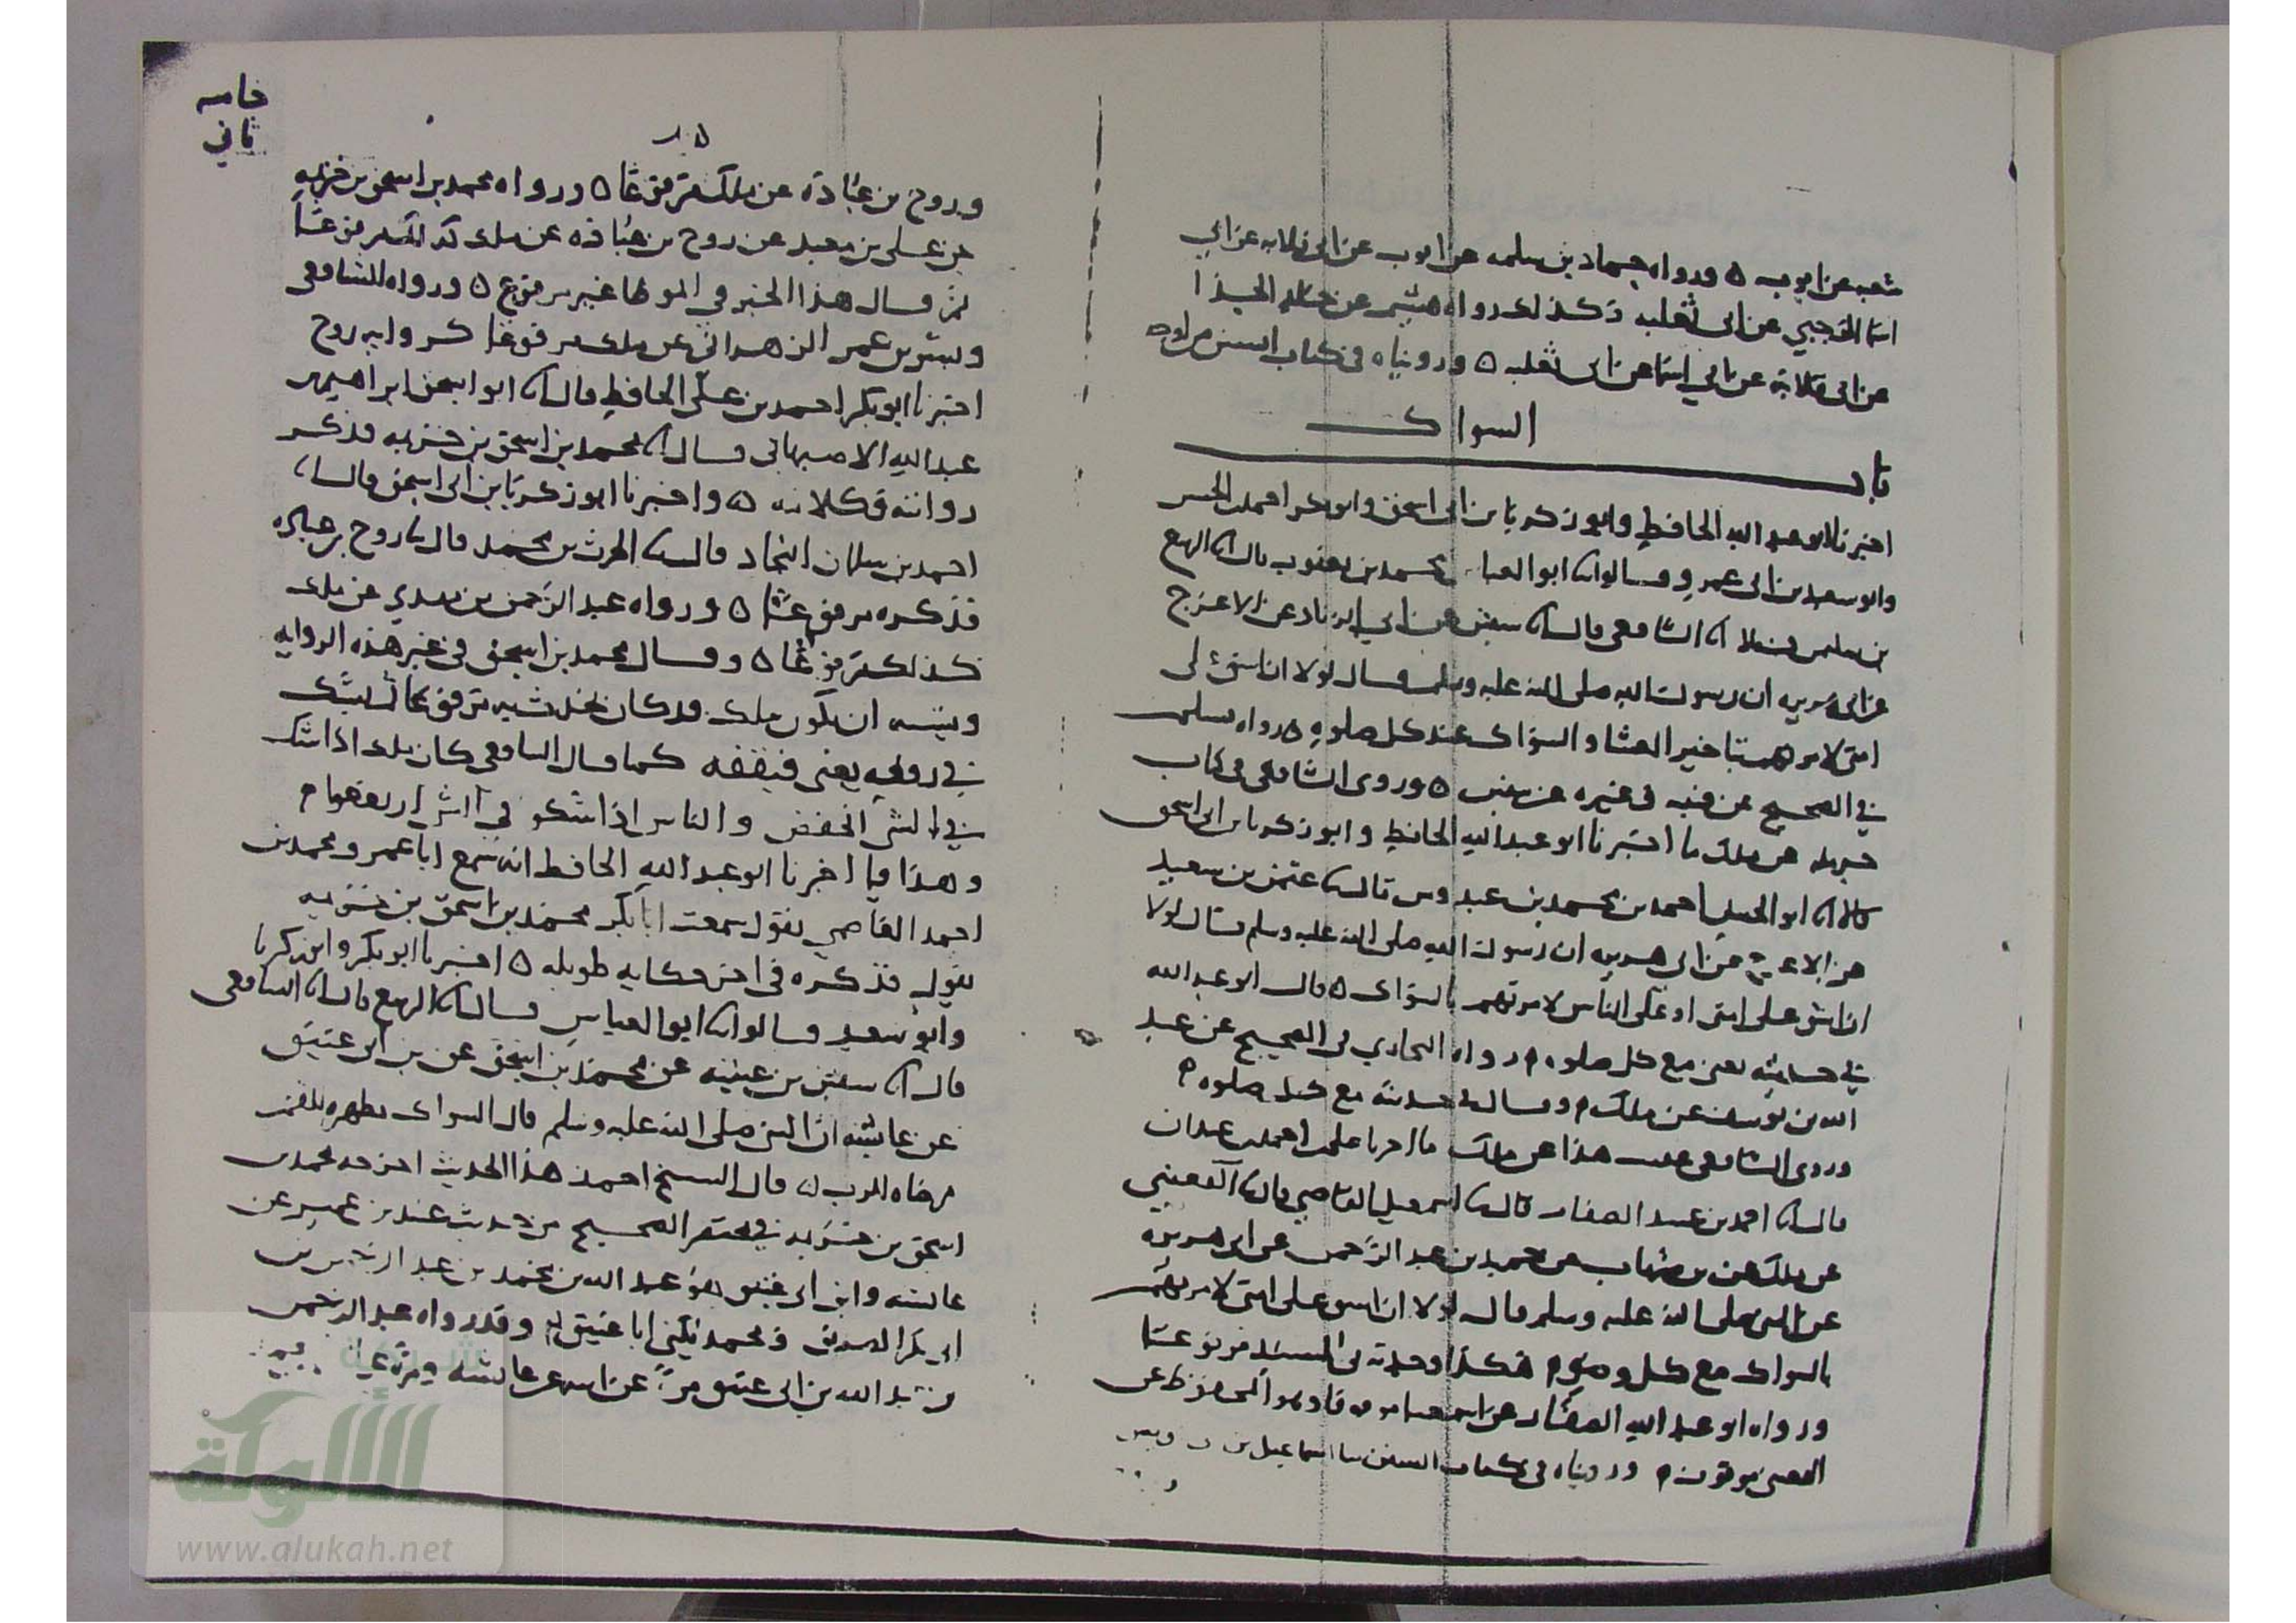 شعبه عن ايوب ٥ ورواه حماد بن سلمه عن ايوب عن ابي قلابه عن ابي
اسما الرحبي عن ابي ثعلبه وكذلك رواه هشيم عن خالد الحذا
عن ابي قلابة عن ابي اسما عن ابي ثعلبه ٥ وروياه في كتاب السنن
باب السواك
اخبرنا ابو عبد الله الحافظ وابو زكريا بن ابي اسحق وابو بكر احمد بن الحسن
وابو سعيد بن ابي عمرو قالوا انا ابو العباس محمد بن يعقوب قال انا الربيع
بن سليمن قال انا الشافعي قال انا سفين عن ابي الزناد عن الاعرج
عن ابي هريره ان رسول الله صلى الله عليه وسلم قال لولا ان اشق على
امتي لامرتهم بتاخير العشا والسواك عند كل صلوه ٥ رواه مسلم
في الصحيح عن قتيبه وغيره عن سفين ٥ وروى الشافعي في كتاب
حرمله عن ملك ما اخبرنا ابو عبد الله الحافظ وابو زكريا بن ابي اسحق
قالا انا ابو الحسن احمد بن محمد بن عبدوس قال نا عثمن بن سعيد
عن الاعرج عن ابي هريره ان رسول الله صلى الله عليه وسلم قال لولا
ان اشق على امتي او على الناس لامرتهم بالسواك ٥ قال ابو عبد الله
في حديثه يعني مع كل صلوه ٥ رواه البخاري في الصحيح عن عبد
الله بن يوسف عن ملك ٥ وقال في حديثه مع كل صلوه ٥
وروى الشافعي عقيب هذا عن ملك ما اخبرنا علي بن احمد بن عبدان
قال انا احمد بن عبيد الصفار قال نا اسمعيل القاضي قال نا القعنبي
عن ملك عن بن شهاب عن حميد بن عبد الرحمن عن ابي هريره
عن النبي صلى الله عليه وسلم قال لولا ان اشق على امتي لامرتهم
بالسواك مع كل وضو ٥ هكذا وجدته في المسند مرفوعا
ورواه ابو عبد الله الصفار عن اسمعيل موقوفا وهو المحفوظ عن
القعنبي موقوف ٥ وروياه في كتاب السنن اسماعيل بن
خامسه
ثاني
١٥
وروح بن عبادة عن ملك مرفوعا ٥ ورواه محمد بن اسحق بن خزيمه
عن علي بن معبد عن روح بن عباده عن ملك كذلك مرفوعا
ثم قال هذا الخبر في الموطا غير مرفوع ٥ ورواه الشافعي
وبشر بن عمر الزهراني عن ملك مرفوعا كروايه روح
اخبرنا ابو بكر احمد بن علي الحافظ قال انا ابو اسحق ابراهيم بن
عبد الله الاصبهاني قال انا محمد بن اسحق بن خزيمه فذكر
روايته وكلامه ٥ واخبرنا ابو زكريا بن ابي اسحق قال انا
احمد بن سلمان النجاد قال نا الحرث بن محمد قال نا روح بن عباده
فذكره مرفوعا ٥ ورواه عبد الرحمن بن مهدي عن ملك
كذلك مرفوعا ٥ وقال محمد بن اسحق في غير هذه الروايه
ويشبه ان يكون ملك قد كان يحدث به مرفوعا ثم يشك
في رفعه يعني فيقفه كما قال الشافعي كان ملك اذا شك
في الشي انخفض والناس اذا شكو في الشي ارتفعوا ٥
وهذا فيما اخبرنا ابو عبد الله الحافظ انه سمع ابا عمرو محمد بن
احمد القاضي يقول سمعت ابا بكر محمد بن اسحق بن خزيمه
يقول فذكره في اخر حكايه طويله ٥ اخبرنا ابو بكر وابو زكريا
وابو سعيد قالوا نا ابو العباس قال انا الربيع قال انا الشافعي
قال انا سفين بن عيينه عن محمد بن اسحق عن بن ابي عتيق
عن عايشه ان النبي صلى الله عليه وسلم قال السواك مطهره للفم
مرضاه للرب ٥ قال الشيخ احمد هذا الحديث اخرجه محمد بن
اسحق بن خزيمه في مختصر الصحيح من حديث عبيد بن عمير عن
عائشه وابن ابي عتيق هو عبد الله بن محمد بن عبد الرحمن بن
ابي بكر الصديق ومحمد يكنى ابا عتيق ٥ وقد رواه عبد الرحمن
بن عبد الله بن ابي عتيق مرة عن ابيه عن عائشه ومرة عن